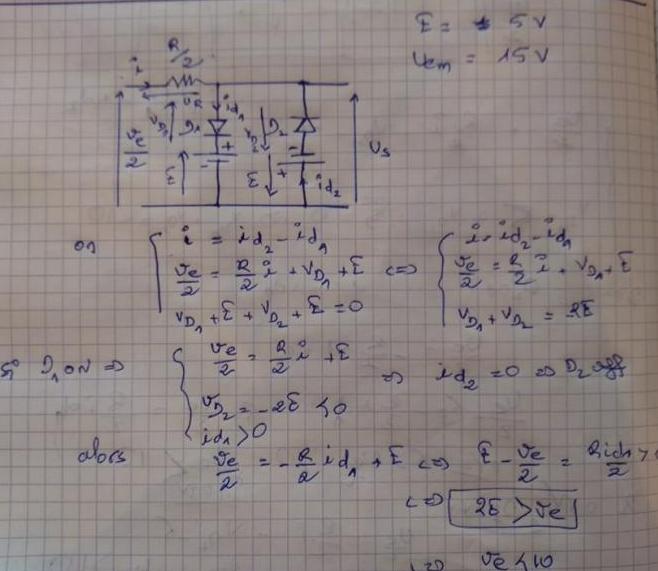 E = 5V
Vem = 15V
R/2
i
VR
VD1
D1
id1
VD2
D2
ve/2
E
+
-
E
-
+
id2
Vs
on
i = id2 - id1
ve/2 = R/2 i + VD1 + E
VD1 + E + VD2 + E = 0
<=>
i = id2 - id1
ve/2 = R/2 i + VD1 + E
VD1 + VD2 = 2E
Si D1 ON =>
ve/2 = R/2 i + E
VD2 = -2E < 0
id1 > 0
=> id2 = 0 => D2 off
alors ve/2 = -R/2 id1 + E <=> E - ve/2 = R id1/2 >
<=> 2E > ve
<=> ve < 10